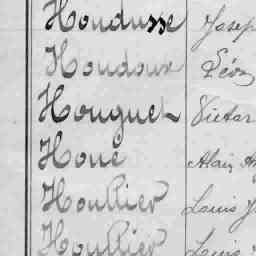 Houdusse Josep
Houdoux Léon
Houguet Victor
Houé Alain An
Houllier Louis J
Houllier Louis